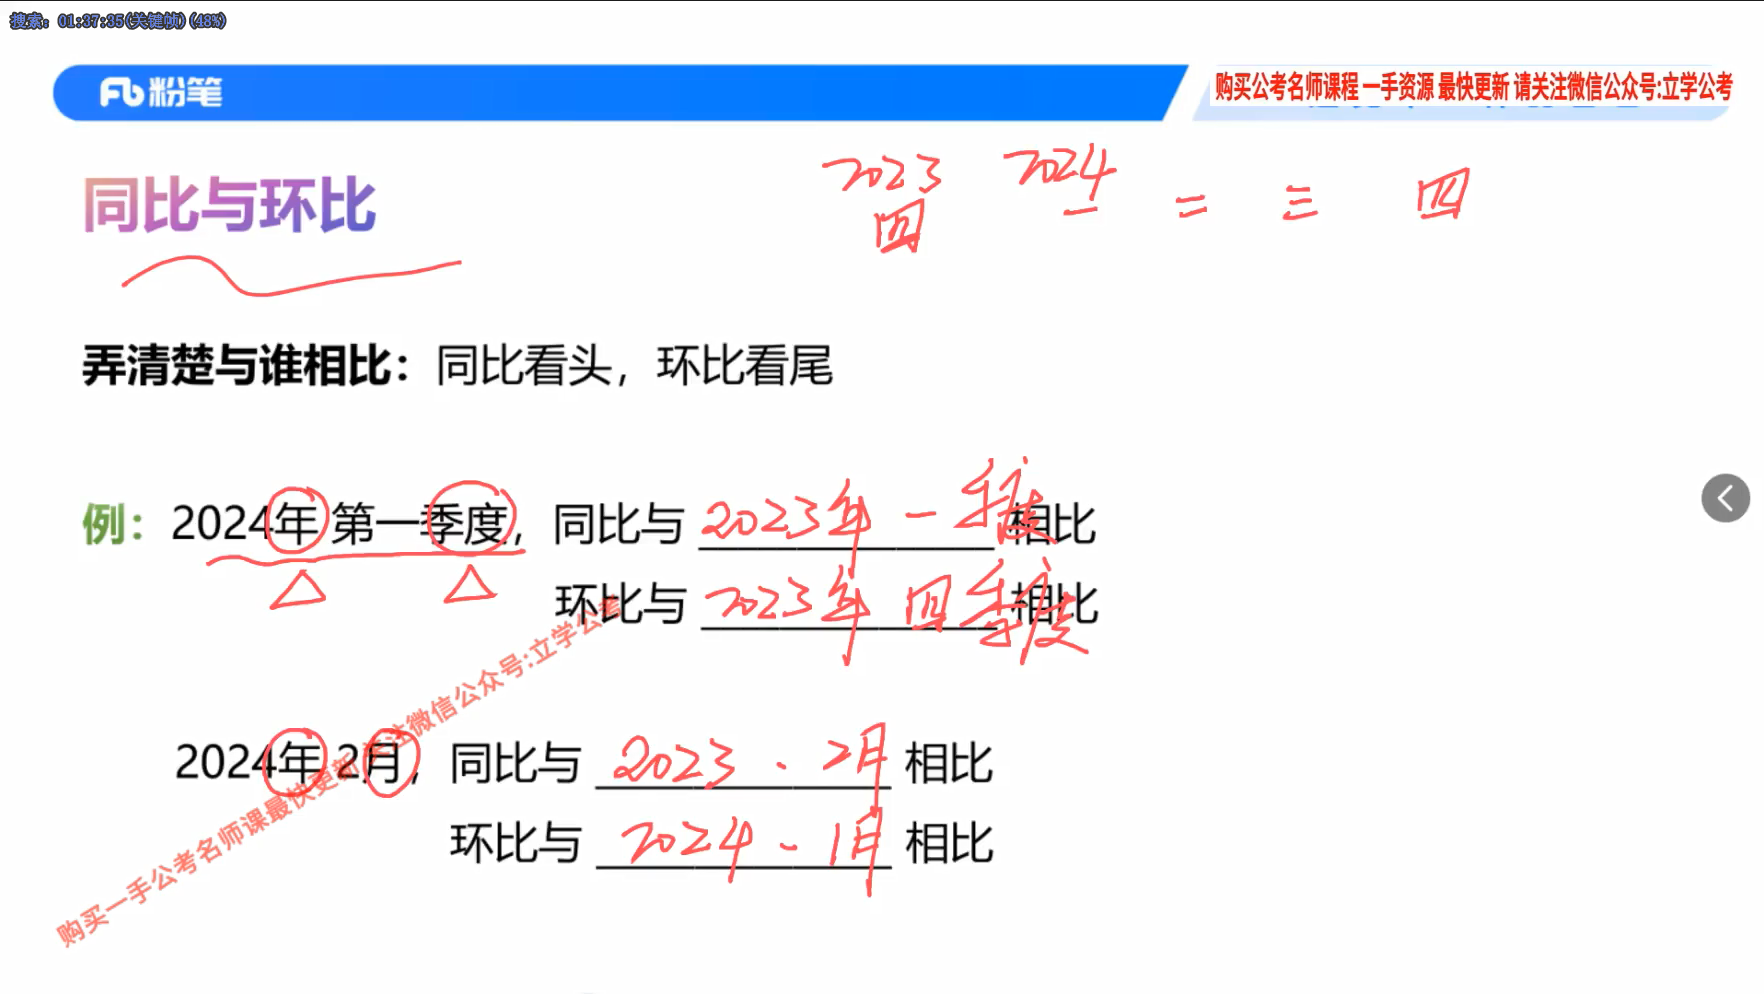 搜索: 01:37:35(关键帧)(48%)
粉笔
购买公考名师课程 一手资源 最快更新 请关注微信公众号:立学公考
2023 2024
四 一 二 三 四
同比与环比
弄清楚与谁相比：同比看头，环比看尾
例：2024年 第一季度，同比与 2023年 一季度 相比
环比与 2023年 四季度 相比
2024年 2月，同比与 2023 . 2月 相比
环比与 2024 . 1月 相比
购买一手公考名师课最快更新 关注微信公众号:立学公考